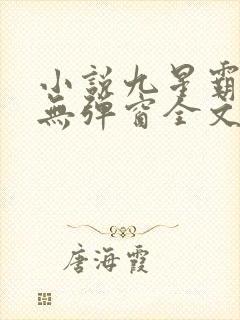 小說九星霸
無彈窗全文
唐海霞